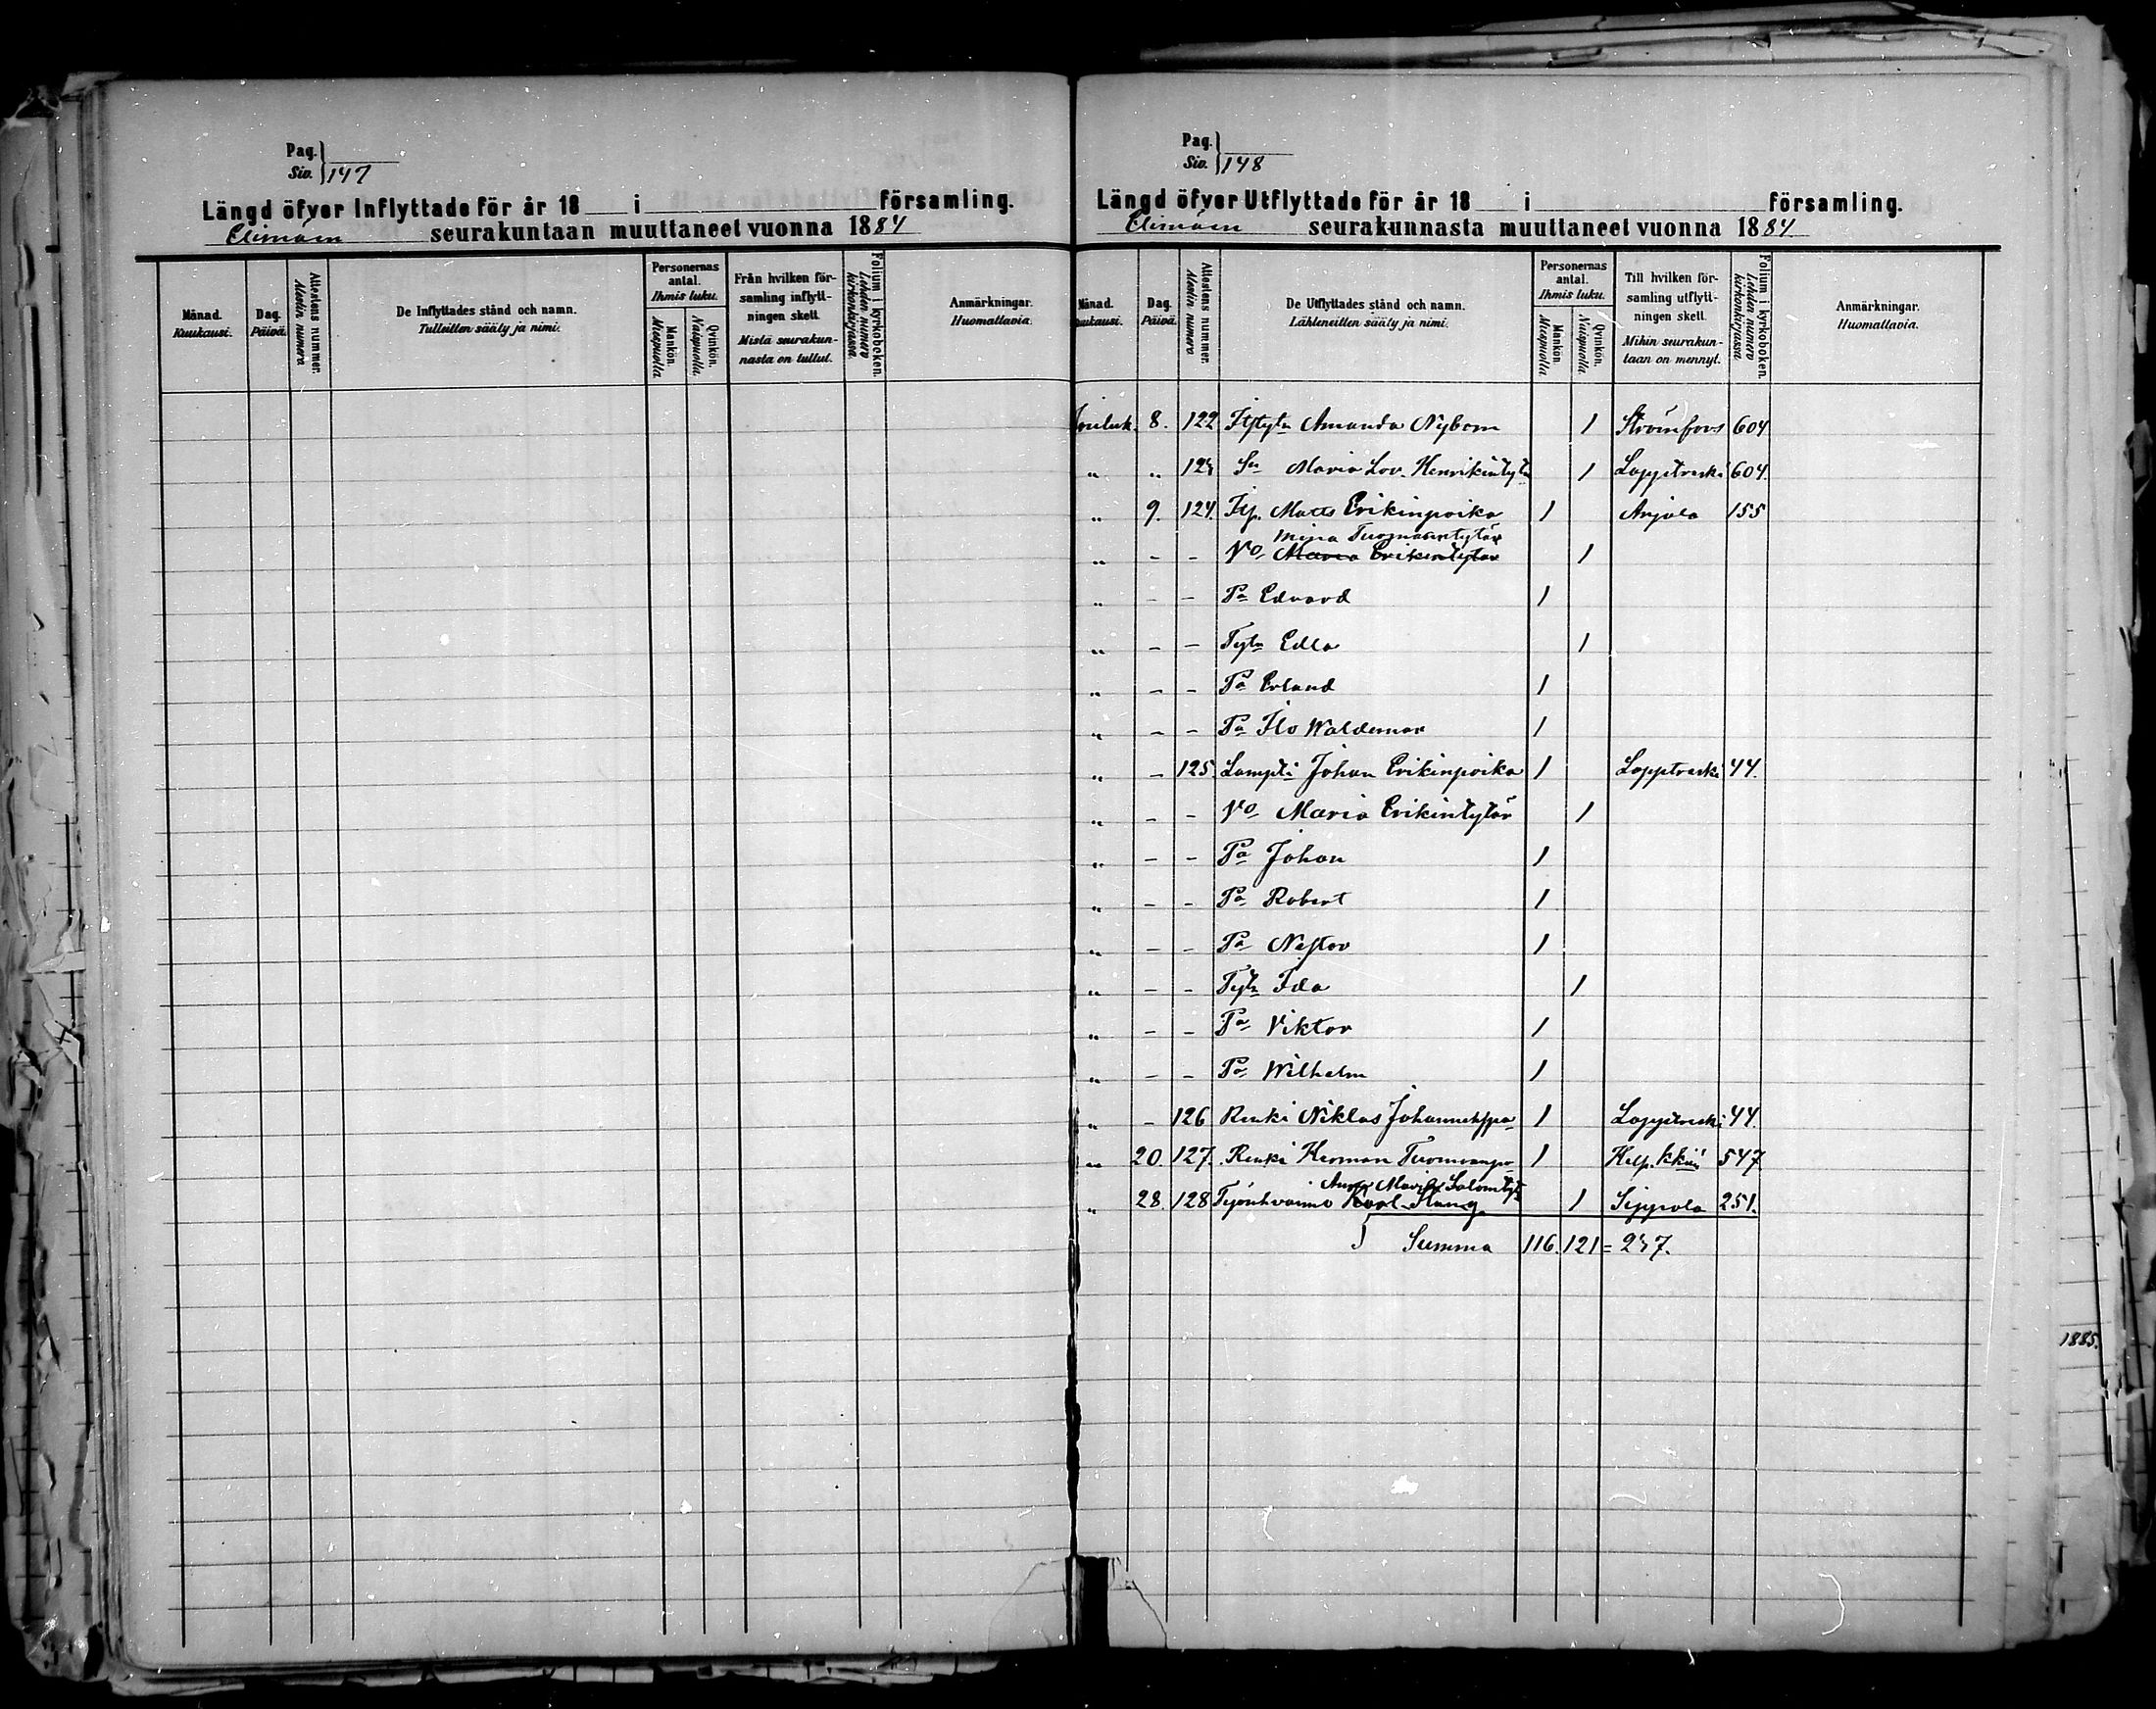 Pag.
Siv. 147
Längd öfver Inflyttade för år 18 i församling.
Elimäen seurakuntaan muuttaneet vuonna 1884
Månad. Kuukausi.
Dag. Päivä.
Attestens nummer. Atestin numero
De Inflyttades stånd och namn. Tulleitten sääty ja nimi.
Personernas antal. Ihmis luku.
Mankön. Miespuolia
Qvinkön. Naispuolia.
Från hvilken församling inflyttningen skett. Mistä seurakunnasta on tullut.
Folium i kyrkoboken. Lehden numero kirkonkirjassa.
Anmärkningar. Huomattavia.
Pag.
Siv. 148
Längd öfver Utflyttade för år 18 i församling.
Elimäen seurakunnasta muuttaneet vuonna 1884
Månad. Kuukausi.
Dag. Päivä.
Attestens nummer. Atestin numero
De Utflyttades stånd och namn. Lähteneitten sääty ja nimi.
Personernas antal. Ihmis luku.
Mankön. Miespuolia
Qvinkön. Naispuolia.
Till hvilken församling utflyttningen skett. Mihin seurakuntaan on mennyt.
Folium i kyrkoboken. Lehden numero kirkonkirjassa.
Anmärkningar. Huomattavia.
Jouluk. 8. 122 Itstytr Amanda Nybom 1 Strömfors 604
" " 123 Sr Maria Lov. Henrikintytr 1 Lapptreski 604.
" 9. 124. Itp. Matts Erikinpoika 1 Anjala 155
Mina Tuomaantytär
" - - Vo Maria Erikintytär 1
" - - Pa Edvard 1
" - - Tytr Edla 1
" - - Pa Erland 1
" - - Pa Ilo Waldemar 1
" - 125. Lampti Johan Erikinpoika 1 Lapptreski 44.
" - - Vo Maria Erikintytär 1
" - - Pa Johan 1
" - - Pa Robert 1
" - - Pa Nestor 1
" - - Tytr Ida 1
" - - Pa Viktor 1
" - - Pa Wilhelm 1
" - 126 Renki Niklas 1 Lapptreski 44.
" 20. 127. Renki Herman 1 Help. 547
Anna Maria Salomtytr
" 28. 128 Karl Stang 1 Sippola 251.
Summa 116. 121 = 237.
1885.